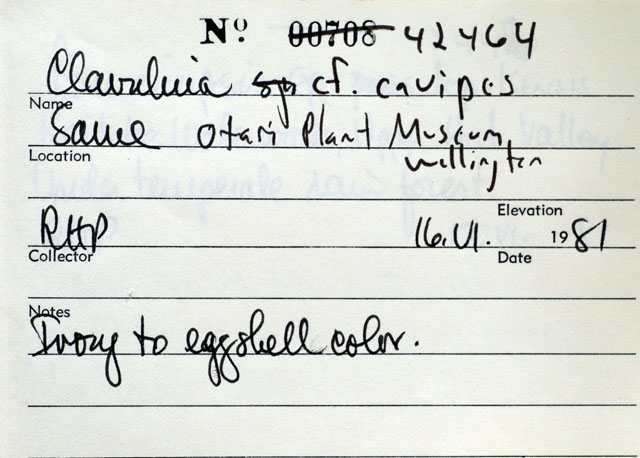 Nº 00708 42464
Clavulinia sp cf. cavipes
Name
Same Otari Plant Museum
Wellington
Location
Elevation
RHP 16.VI. 1981
Collector Date
Notes
Ivory to eggshell color.